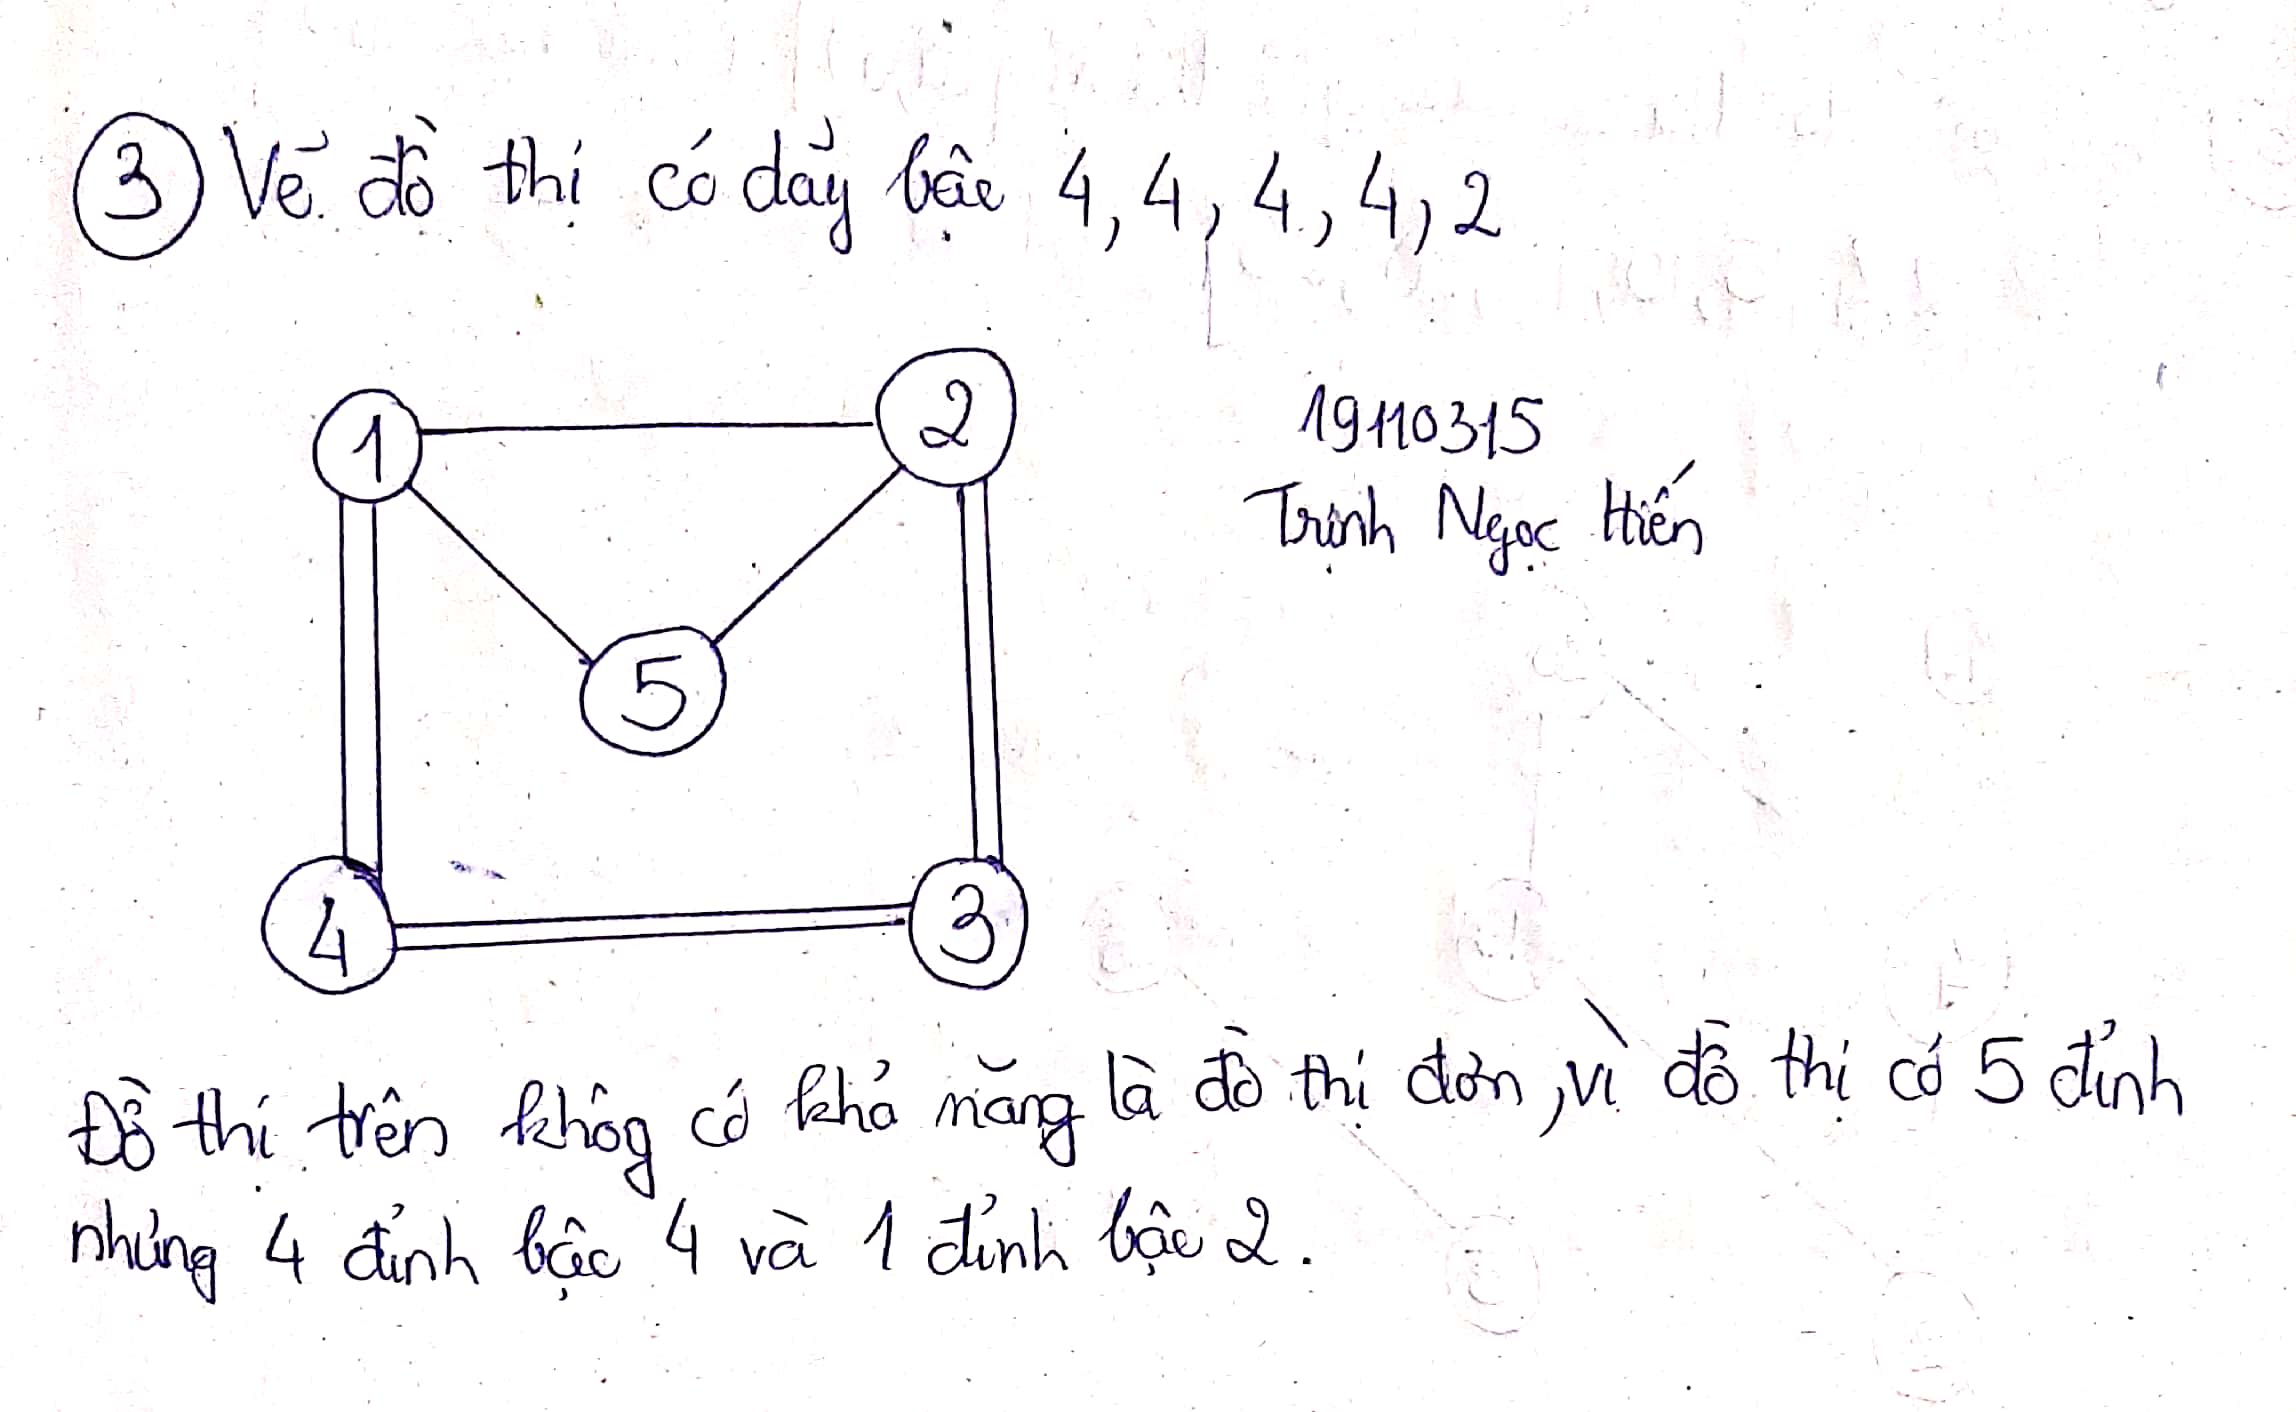 3 Vẽ đồ thị có dãy bậc 4, 4, 4, 4, 2
1
2
19110315
Trịnh Ngọc Hiến
5
4
3
Đồ thị trên khôg có khả năng là đồ thị đơn, vì đồ thị có 5 đỉnh
nhưng 4 đỉnh bậc 4 và 1 đỉnh bậc 2.